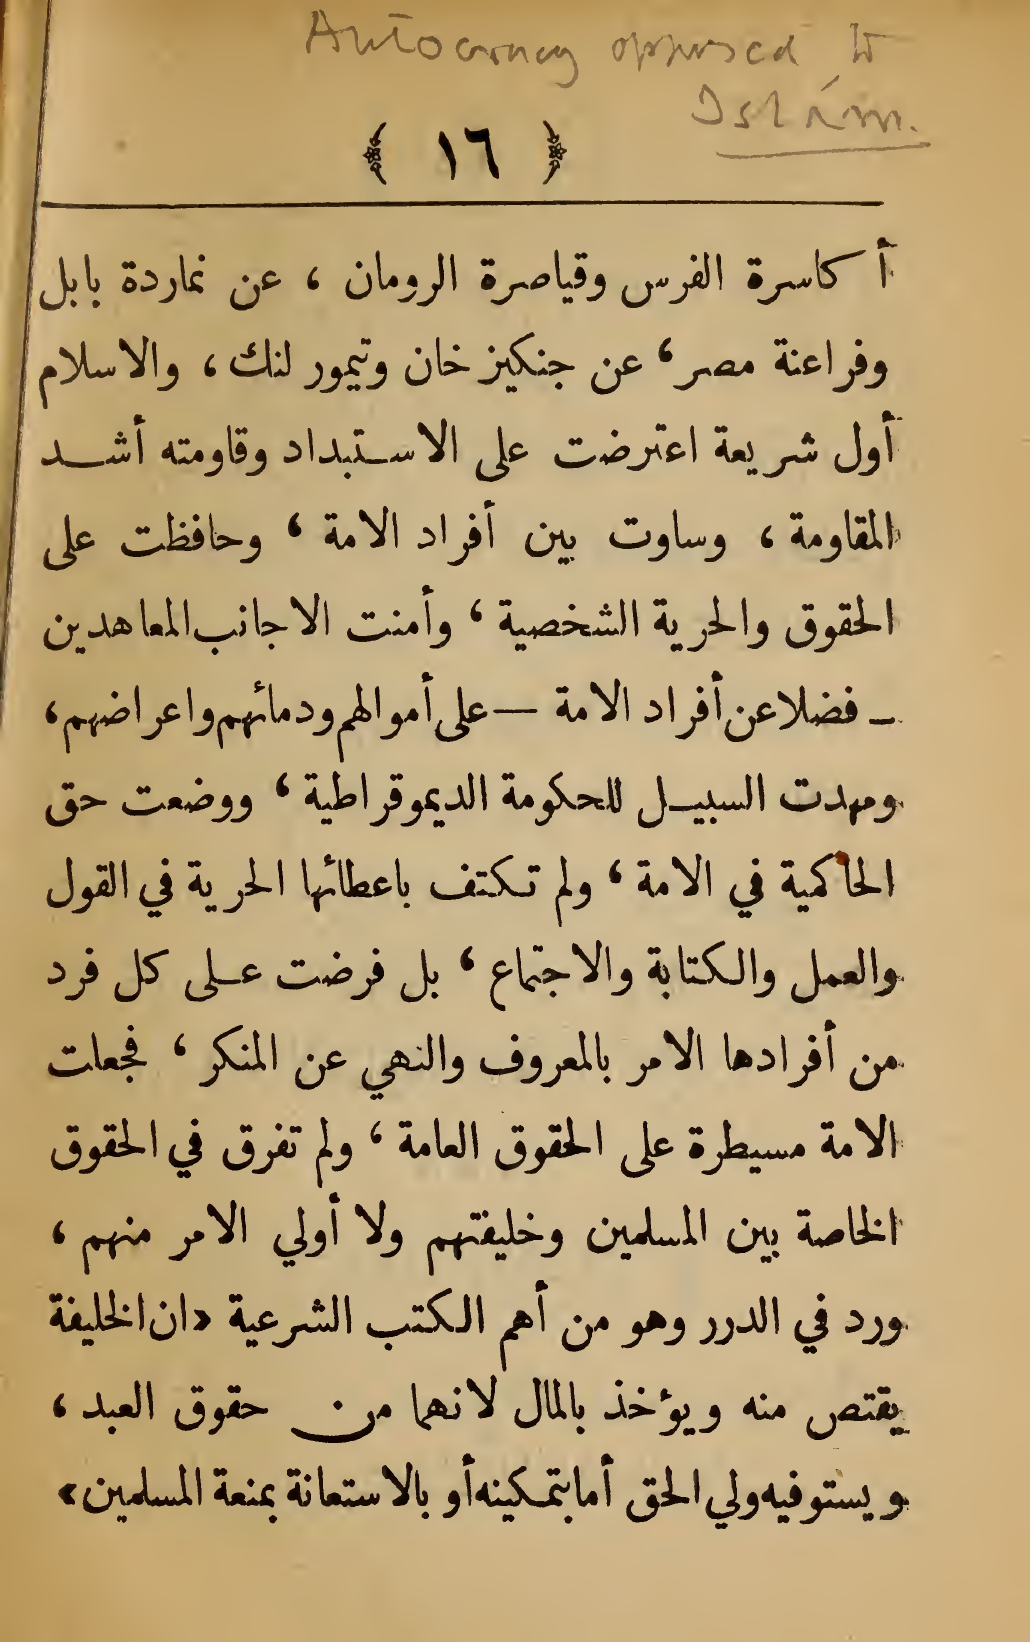 Autocracy opposed to
Islám.
﴿ ١٦ ﴾
أ كاسرة الفرس وقياصرة الرومان ، عن نماردة بابل
وفراعنة مصر ، عن جنكيز خان وتيمور لنك ، والاسلام
أول شريعة اعترضت على الاستبداد وقاومته أشد
المقاومة ، وساوت بين أفراد الامة ، وحافظت على
الحقوق والحرية الشخصية ، وأمنت الاجانب المعاهدين
ـ فضلا عن أفراد الامة — على أموالهم ودمائهم واعراضهم ،
ومهدت السبيل للحكومة الديموقراطية ، ووضعت حق
الحاكمية في الامة ، ولم تكتف باعطائها الحرية في القول
والعمل والكتابة والاجتماع ، بل فرضت على كل فرد
من أفرادها الامر بالمعروف والنهي عن المنكر ، فجعلت
الامة مسيطرة على الحقوق العامة ، ولم تفرق في الحقوق
الخاصة بين المسلمين وخليفتهم ولا أولي الامر منهم ،
ورد في الدرر وهو من أهم الكتب الشرعية «ان الخليفة
يقتص منه ويؤخذ بالمال لانهما من حقوق العبد ،
ويستوفيه ولي الحق أما بتمكينه أو بالاستعانة بمنعة المسلمين»